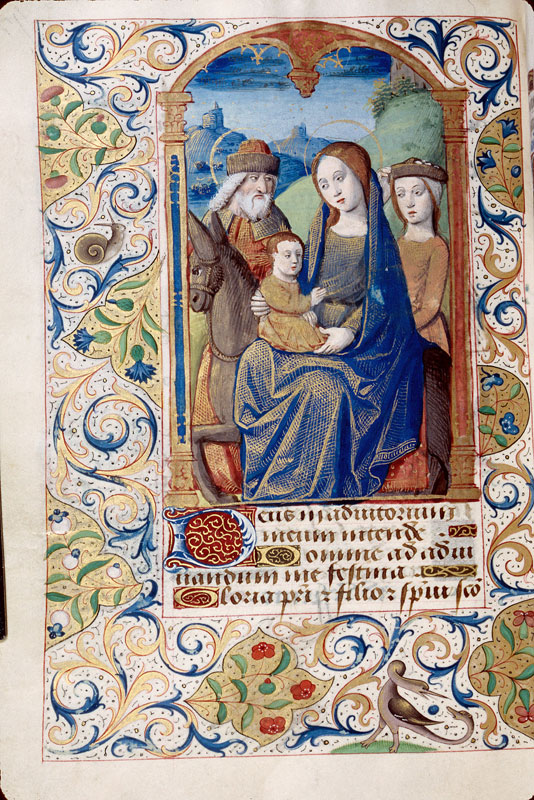 Deus in adiutorium
meum intende
Domine ad adiu
uandum me festina
Gloria pri ⁊ filio ⁊ spui sco